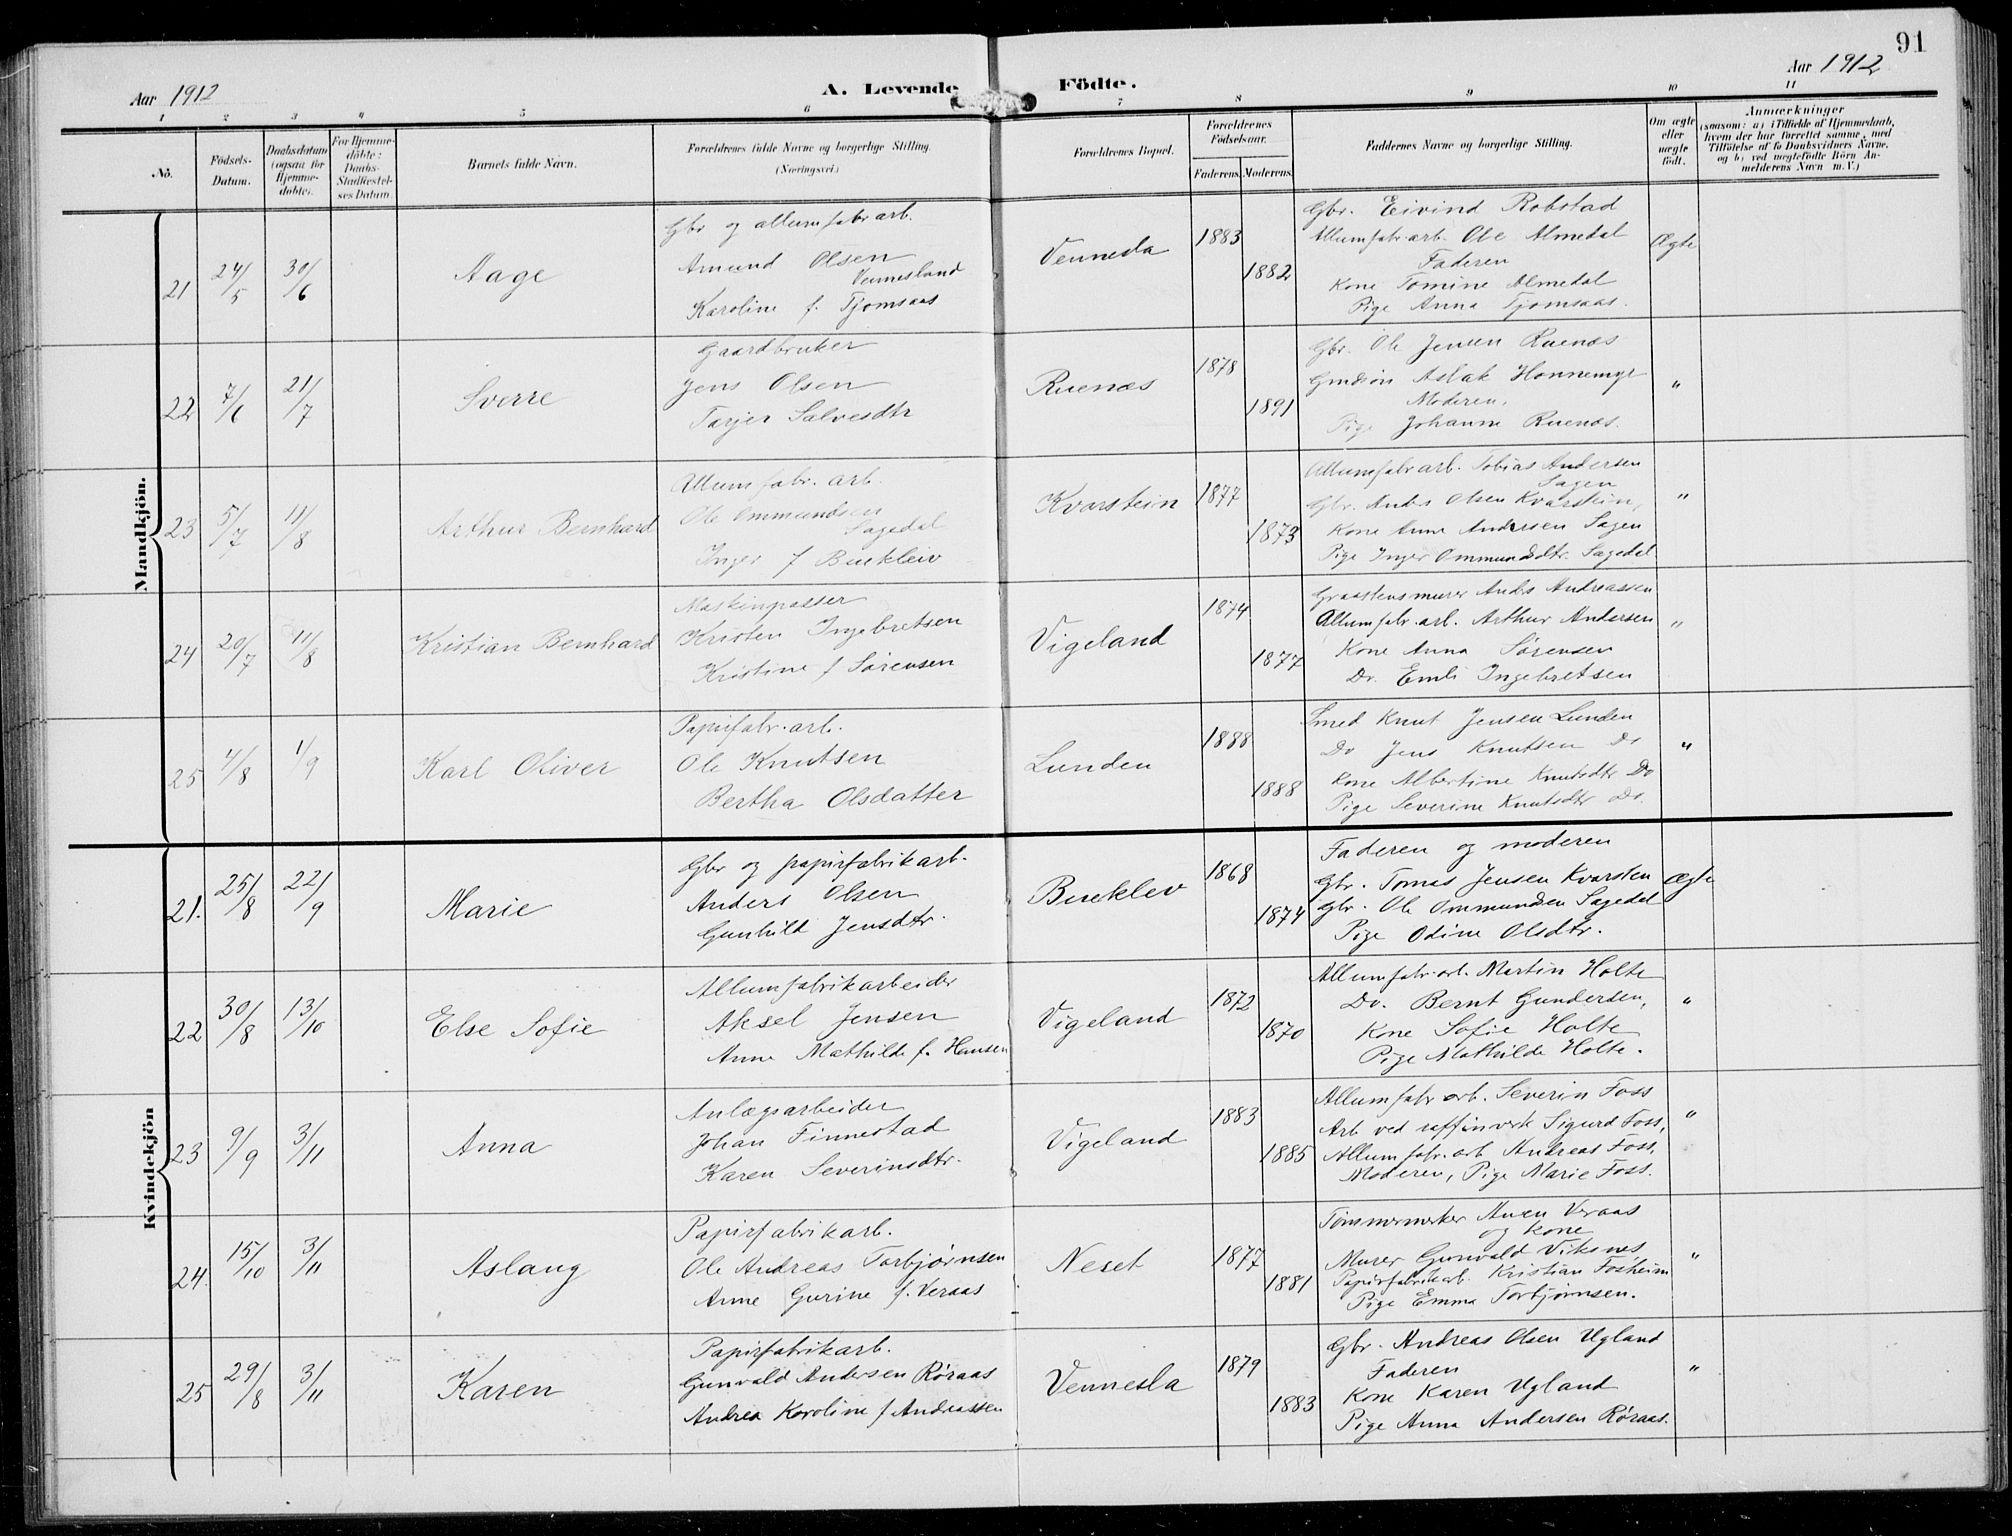 91
Aar 1912
A. Levende Födte.
Aar 1912
1 2 3 4 5 6 7 8 9 10 11
No.
Födsels-Datum.
Daabsdatum (ogsaa for Hjemmedöbte).
For Hjemmedöbte: Daabs-Stadfæstelses Datum.
Barnets fulde Navn.
Forældrenes fulde Navne og borgerlige Stilling. (Næringsvei.)
Forældrenes Bopæl.
Forældrenes Födselsaar.
Faderens. Moderens.
Faddernes Navne og borgerlige Stilling.
Om ægte eller uægte født.
Anmærkninger (saasom: a) i Tilfælde af Hjemmedaab, hvem der har forrettet samme, med Tilföielse af to Daabsvidners Navne, og b) ved uægtefödte Börn Anmelderens Navn m.V.)
Mandkjön.
21 24/5 30/6 Aage
Gbr og allumfabr arb.
Amund Olsen Vennesland
Karoline f. Tjomsaas
Vennesla 1883 1882
Gbr. Eivind Robstad
Allumfabr. arb. Ole Almedal
Faderen
Kone Tomine Almedal
Pige Anna Tjomsaas.
Ægte
22 7/6 21/7 Sverre
Gaardbruker
Jens Olsen
Tarjer Salvesdtr
Ruenæs 1878 1891
Gbr. Ole Jensen Ruenæs
Gmdsön Aslak Honnemyr
Moderen.
Pige Johanne Ruenæs.
"
23 5/7 11/8 Arthur Bernhard
Allumfabr. arb.
Ole Ommundsen Sagedal
Inger f Bueklev
Kvarstein 1877 1873
Allumfabr arb. Tobias Andersen Sagen
Gbr. Anders Olsen Kvarstein,
Kone Anne Andersen Sagen
Pige Inger Ommundsdtr. Sagedal
"
24 20/7 11/8 Kristian Bernhard
Maskinpasser
Kristen Ingebretsen
Kristine f Sørensen
Vigeland 1874 1877
Graastensmurer Anders Andreassen
Allumfabr. arb. Arthur Andersen
Kone Anna Sørensen
Do. Emli Ingebretsen
"
25 4/8 1/9 Karl Oliver
Papirfabr. arb.
Ole Knutsen
Bertha Olsdatter
Lunden 1888 1888
Smed Knut Jensen Lunden
Do Jens Knutsen Do
Kone Albertine Knutsdtr Do
Pige Severine Knutsdtr Do.
"
Kvindekjön
21. 25/8 22/9 Marie
Gbr og papirfabrikarb.
Anders Olsen
Gunhild Jensdtr.
Bueklev 1868 1874
Faderen og moderen
Gbr. Tomas Jensen Kvarsten
Gbr. Ole Ommundsen Sagedal
Pige Odine Olsdtr.
Ægte
22 30/8 13/10 Else Sofie
Allumfabrikarbeider
Aksel Jensen
Anne Mathilde f. Hansen
Vigeland 1872 1870
Allumfabr arb. Martin Holte
Do. Bernt Gundersen,
Kone Sofie Holte
Pige Mathilde Holte.
"
23 9/9 3/11 Anna
Anlægsarbeider
Johan Finnestad
Karen Severinsdtr.
Vigeland 1883 1885
Allumfabr arb. Severin Foss
Arb ved raffinverk Sigurd Foss,
Allumfabr. arb Andreas Foss,
Moderen, Pige Marie Foss.
"
24. 15/10 3/11 Aslaug
Papirfabrikarb.
Ole Andreas Torbjørnsen
Anne Gurine f. Veraas
Neset 1877 1881
Tømmermerker Auen Veraas og kone
Murer Gunvald Viksnes
Papirfabrikarb. Kristian Fosheim
Pige Emma Torbjørnsen.
"
25 29/8 3/11 Karen
Papirfabrikarb.
Gunvald Andersen Røraas
Andrea Karoline f Andreassen
Vennesla 1879 1883
Gbr. Andreas Olsen Ugland
Faderen
Kone Karen Ugland
Pige Anna Andersen Røraas.
"